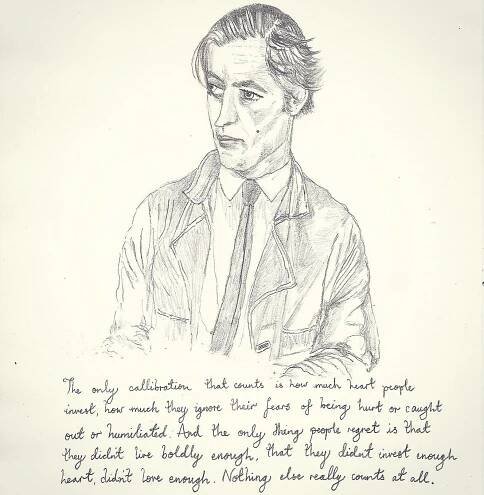 The only callibration that counts is how much heart people
invest, how much they ignore their fears of being hurt or caught
out or humiliated. And the only thing people regret is that
they didn't live boldly enough, that they didn't invest enough
heart, didn't love enough. Nothing else really counts at all.